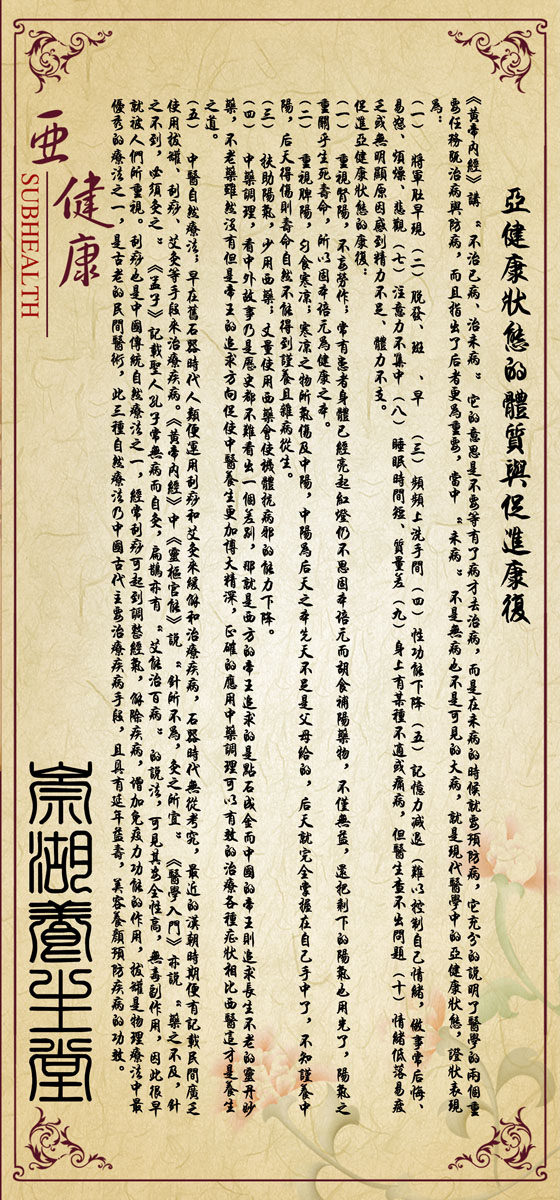 亞健康狀態的體質與促進康復
《黃帝內經》講“不治已病、治未病”它的意思是不要等有了病才去治病，而是在未病的時候就要預防病，它充分的說明了醫學的兩個重
要任務既治病與防病，而且指出了后者更為重要，當中“未病”不是無病也不是可見的大病，就是現代醫學中的亞健康狀態，證狀表現
為：
（一）將軍肚早現（二）脫發、斑、早（三）頻頻上洗手間（四）性功能下降（五）記憶力減退（難以控制自己情緒，做事常后悔、
易怒、煩燥、悲觀（七）注意力不集中（八）睡眠時間短、質量差（九）身上有某種不適或痛病，但醫生查不出問題（十）情緒低落易疲
乏或無明顯原因感到精力不足、體力不支。
促進亞健康狀態的康復：
（一）重視腎陽，不妄勞作；常有患者身體已經亮起紅燈仍不思固本培元而胡食補陽藥物，不僅無益，還把剩下的陽氣也用光了，陽氣之
重關乎生死壽命，所以固本培元為健康之本。
（二）重視脾陽，勿食寒涼；寒涼之物所氣傷及中陽，中陽為后天之本先天不足是父母給的，后天就完全掌握在自己手中了，不知謹養中
陽，后天得傷則壽命自然不能得到謹養且雜病從生。
（三）扶助陽氣，少用西藥；丈量使用西藥會使機體抗病邪的能力下降。
（四）中藥調理，看中外故事乃是歷史都不難看出一個差別，那就是西方的帝王追求的是點石成金而中國的帝王則追求長生不老的靈丹妙
藥，不老藥雖然沒有但是帝王的追求方向促使中醫養生更加博大精深，正確的應用中藥調理可以有效的治療各種症狀相比西醫這才是養生
之道。
（五）中醫自然療法；早在舊石器時代人類便運用刮痧和艾灸來緩解和治療疾病，石器時代無從考究，最近的漢朝時期便有記載民間廣乏
使用拔罐、刮痧、艾灸等手段來治療疾病。《黃帝內經》中《靈樞官能》說“針所不為，灸之所宜”《醫學入門》亦說“藥之不及，針
之不到，必須灸之”《孟子》記載聖人孔子常無病而自灸，扁鵲亦有“艾能治百病”的說法，可見其安全性高，無毒副作用，因此很早
就被人們所重視。刮痧也是中國傳統自然療法之一，經常刮痧可起到調整經氣，解除疾病，增加免疫力功能的作用，拔罐是物理療法中最
優秀的療法之一，是古老的民間醫術，此三種自然療法乃中國古代主要治療疾病手段，且具有延年益壽，美容養顏預防疾病的功效。
亞健康
SUBHEALTH
崇湖養生堂